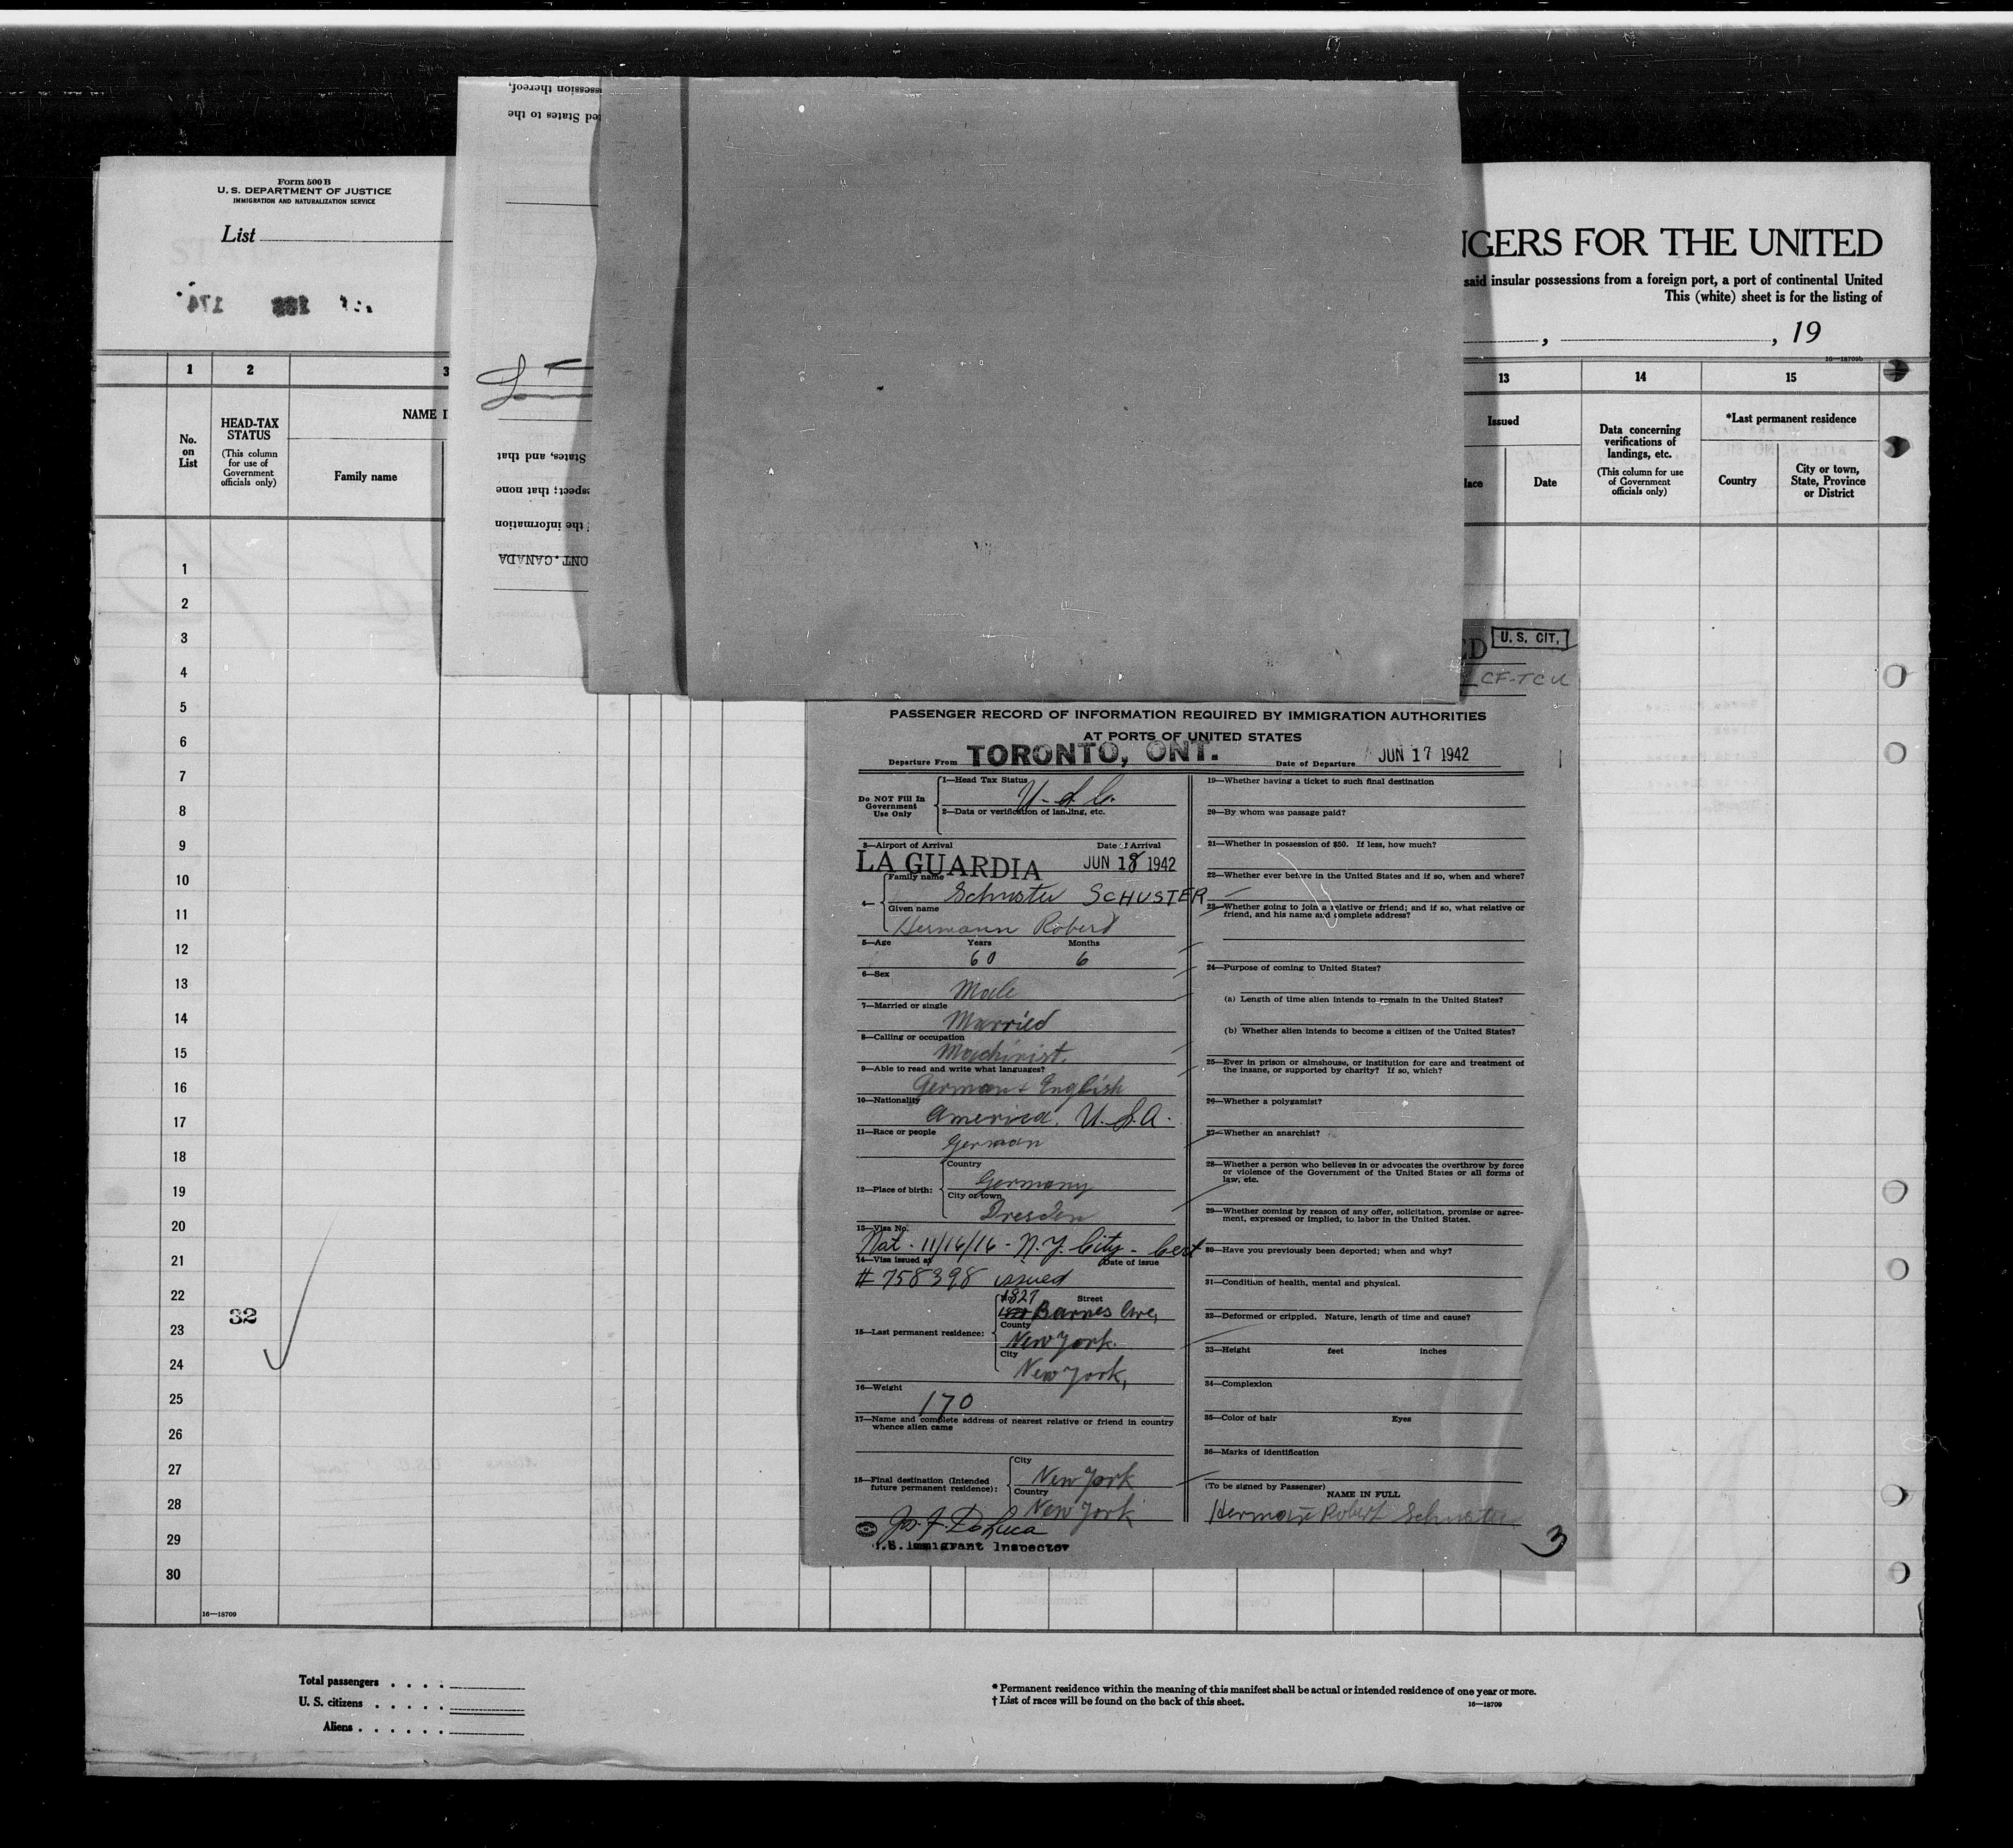 Form 500 B
U. S. DEPARTMENT OF JUSTICE
IMMIGRATION AND NATURALIZATION SERVICE
List
NGERS FOR THE UNITED
said insular possessions from a foreign port, a port of continental United
This (white) sheet is for the listing of
, , 19
16—18709b
ssession thereof,
ted States to the
States, and that
spect; that none
the information
ONT. CANADA
1 2 3 13 14 15
No. on List
HEAD-TAX STATUS
(This column for use of Government officials only)
NAME I
Family name
Issued
lace
Date
Data concerning verifications of landings, etc.
(This column for use of Government officials only)
*Last permanent residence
Country
City or town, State, Province or District
1
2
3
4
5
6
7
8
9
10
11
12
13
14
15
16
17
18
19
20
21
22
32
23
24
25
26
27
28
29
30
16—18709
ED U. S. CIT.
CF-TCU
PASSENGER RECORD OF INFORMATION REQUIRED BY IMMIGRATION AUTHORITIES
AT PORTS OF UNITED STATES
Departure From TORONTO, ONT. Date of Departure JUN 17 1942
Do NOT Fill In Government Use Only
1—Head Tax Status U.S.C.
2—Data or verification of landing, etc.
3—Airport of Arrival Date of Arrival
LA GUARDIA JUN 18 1942
4— Family name Schuster SCHUSTER
Given name
Hermann Robert
5—Age Years Months
60 6
6—Sex
Male
7—Married or single
Married
8—Calling or occupation
Machinist.
9—Able to read and write what languages?
German + English
10—Nationality
America. U.S.A.
11—Race or people
German
12—Place of birth:
Country
Germany
City or town
Dresden
13—Visa No.
Nat. 11/16/16 - N.Y. City - Cert
14—Visa issued at Date of issue
# 758398 issued
15—Last permanent residence:
Street
Barnes Ave,
County
New York.
City
New York,
16—Weight
170
17—Name and complete address of nearest relative or friend in country
whence alien came
18—Final destination (Intended
future permanent residence):
City
New York
Country
New York
U.S. Immigrant Inspector
19—Whether having a ticket to such final destination
20—By whom was passage paid?
21—Whether in possession of $50. If less, how much?
22—Whether ever before in the United States and if so, when and where?
23—Whether going to join a relative or friend; and if so, what relative or
friend, and his name and complete address?
24—Purpose of coming to United States?
(a) Length of time alien intends to remain in the United States?
(b) Whether alien intends to become a citizen of the United States?
25—Ever in prison or almshouse, or institution for care and treatment of
the insane, or supported by charity? If so, which?
26—Whether a polygamist?
27—Whether an anarchist?
28—Whether a person who believes in or advocates the overthrow by force
or violence of the Government of the United States or all forms of
law, etc.
29—Whether coming by reason of any offer, solicitation, promise or agree-
ment, expressed or implied, to labor in the United States.
30—Have you previously been deported; when and why?
31—Condition of health, mental and physical.
32—Deformed or crippled. Nature, length of time and cause?
33—Height feet inches
34—Complexion
35—Color of hair Eyes
36—Marks of identification
(To be signed by Passenger)
NAME IN FULL
Hermann Robert Schuster
3
Total passengers . . . .
U. S. citizens . . . . .
Aliens . . . . . .
* Permanent residence within the meaning of this manifest shall be actual or intended residence of one year or more.
† List of races will be found on the back of this sheet.
16—18709